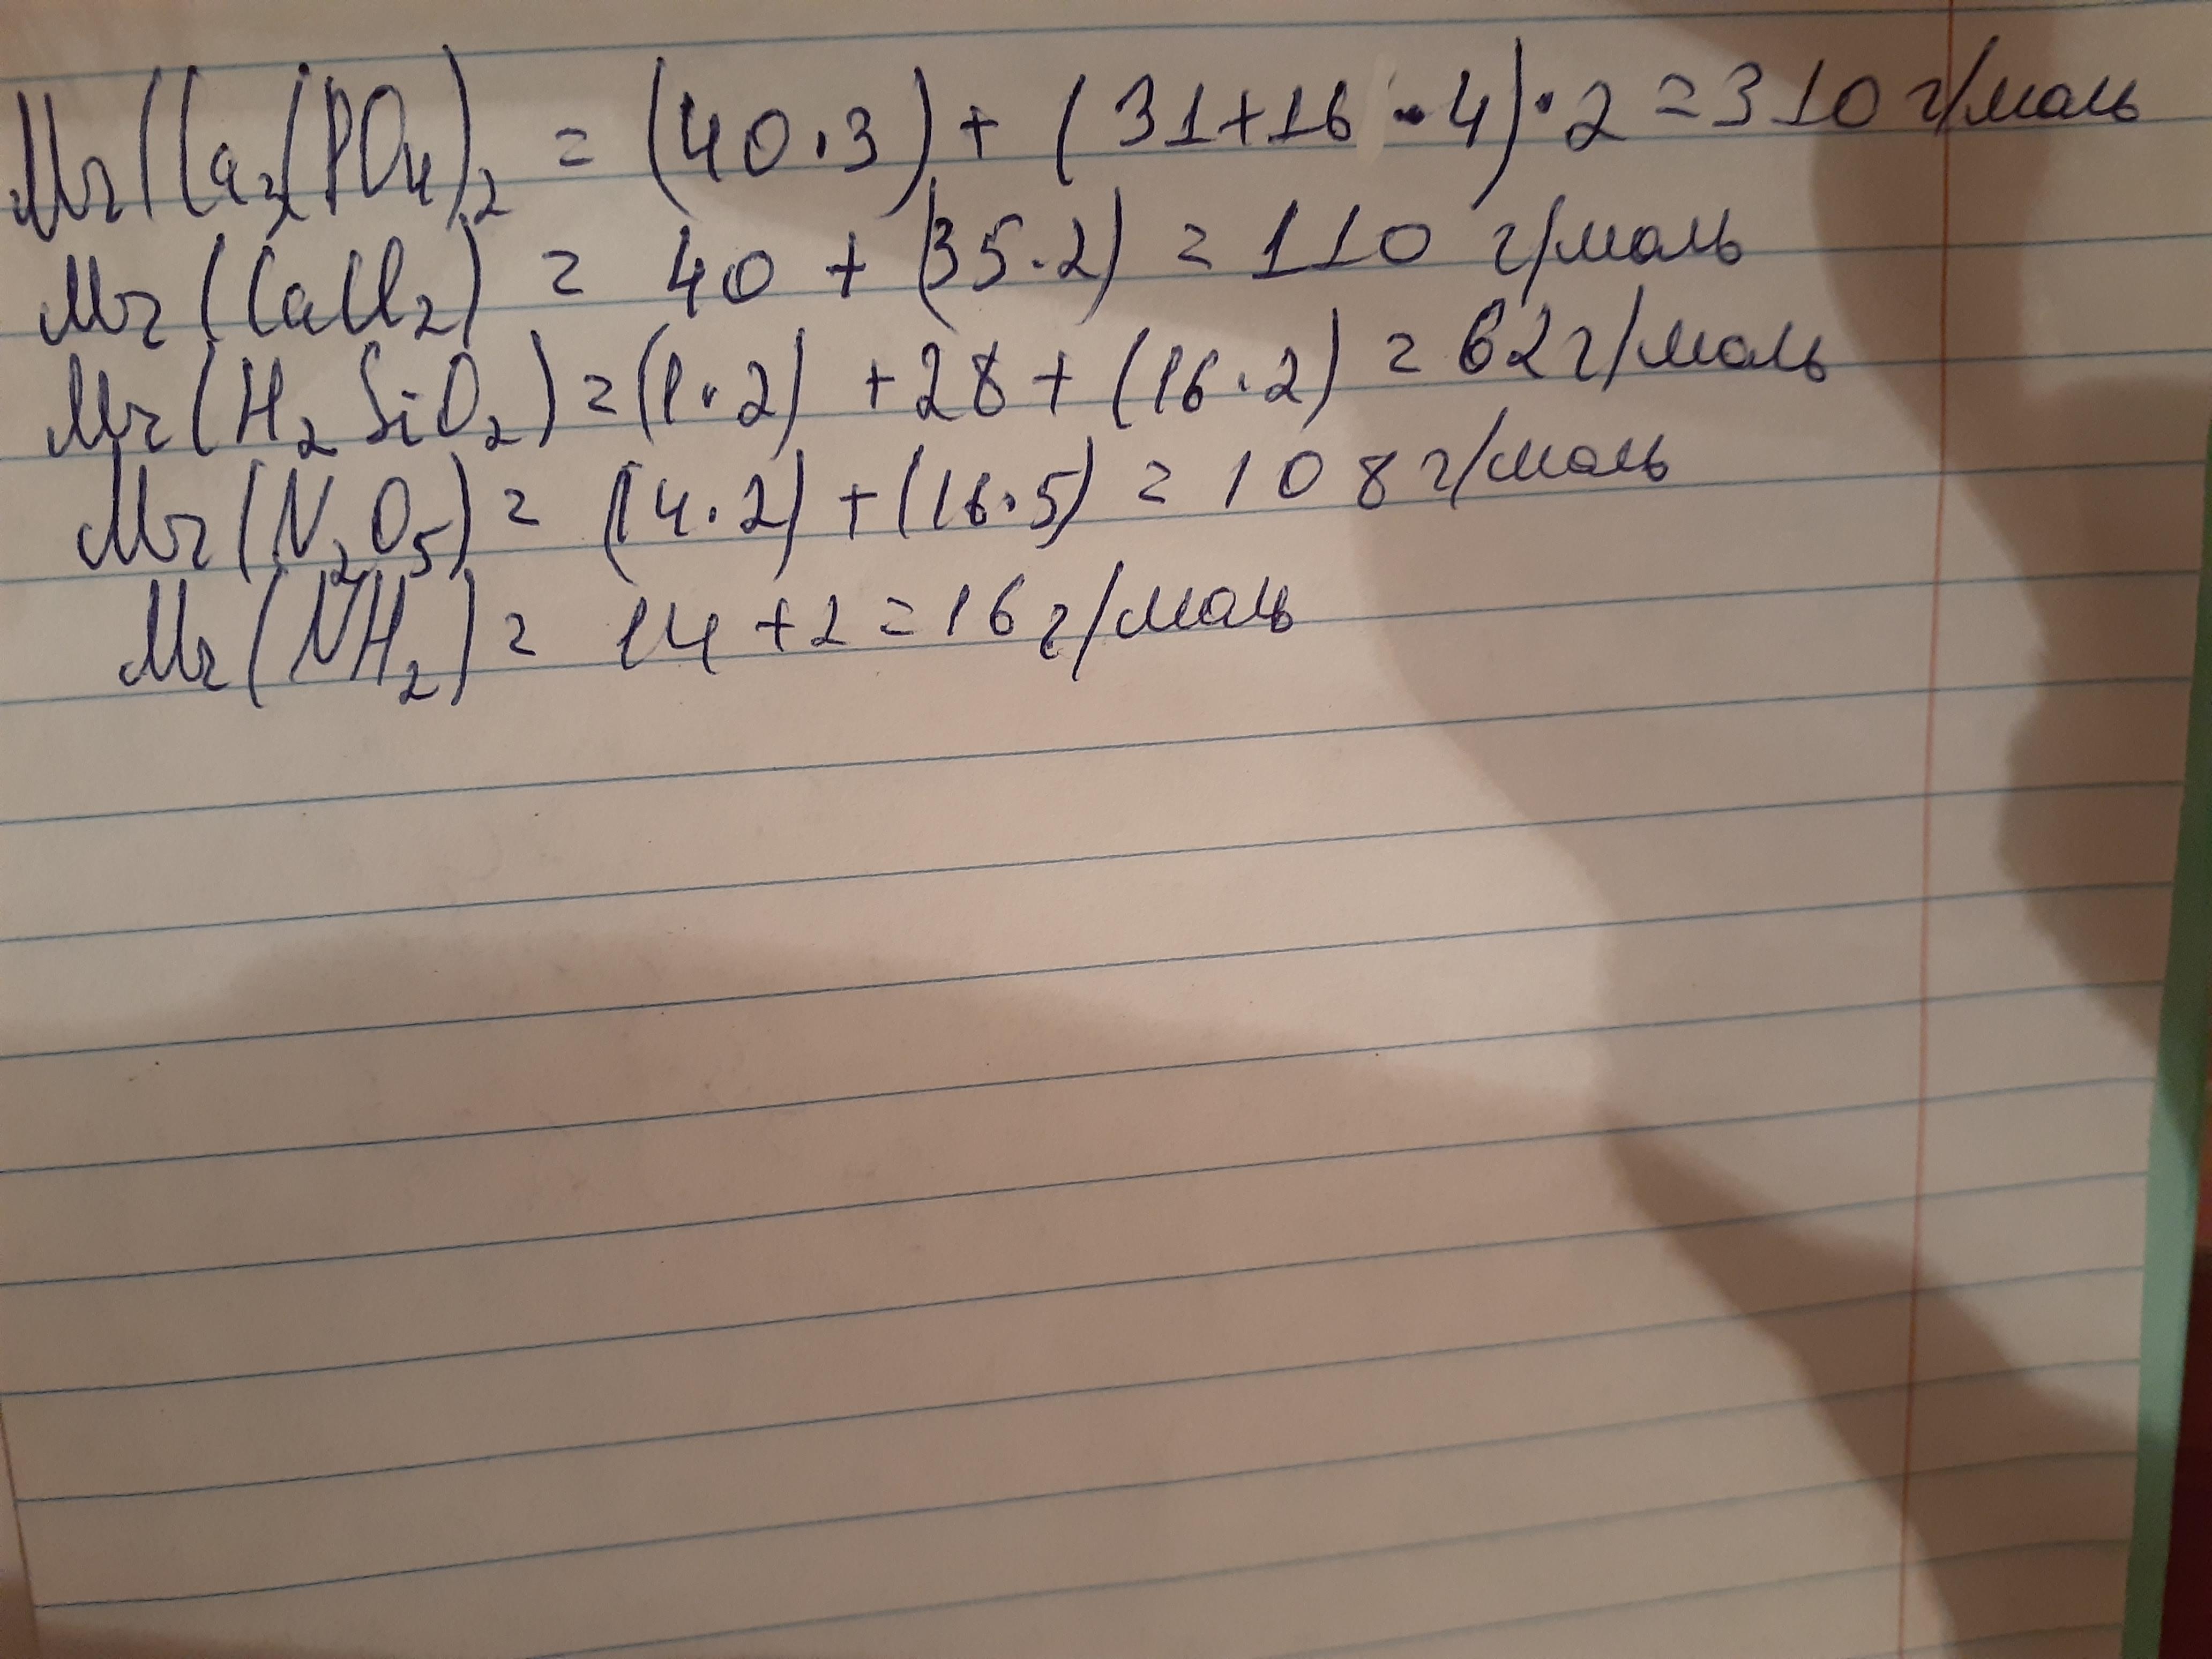 Mr(Ca₃(PO₄)₂ = (40·3) + (31+16·4)·2 = 310 г/моль
Mr(CaCl₂) = 40 + (35·2) = 110 г/моль
Mr(H₂SiO₂) = (1·2) + 28 + (16·2) = 62 г/моль
Mr(N₂O₅) = (14·2) + (16·5) = 108 г/моль
Mr(NH₂) = 14 + 2 = 16 г/моль